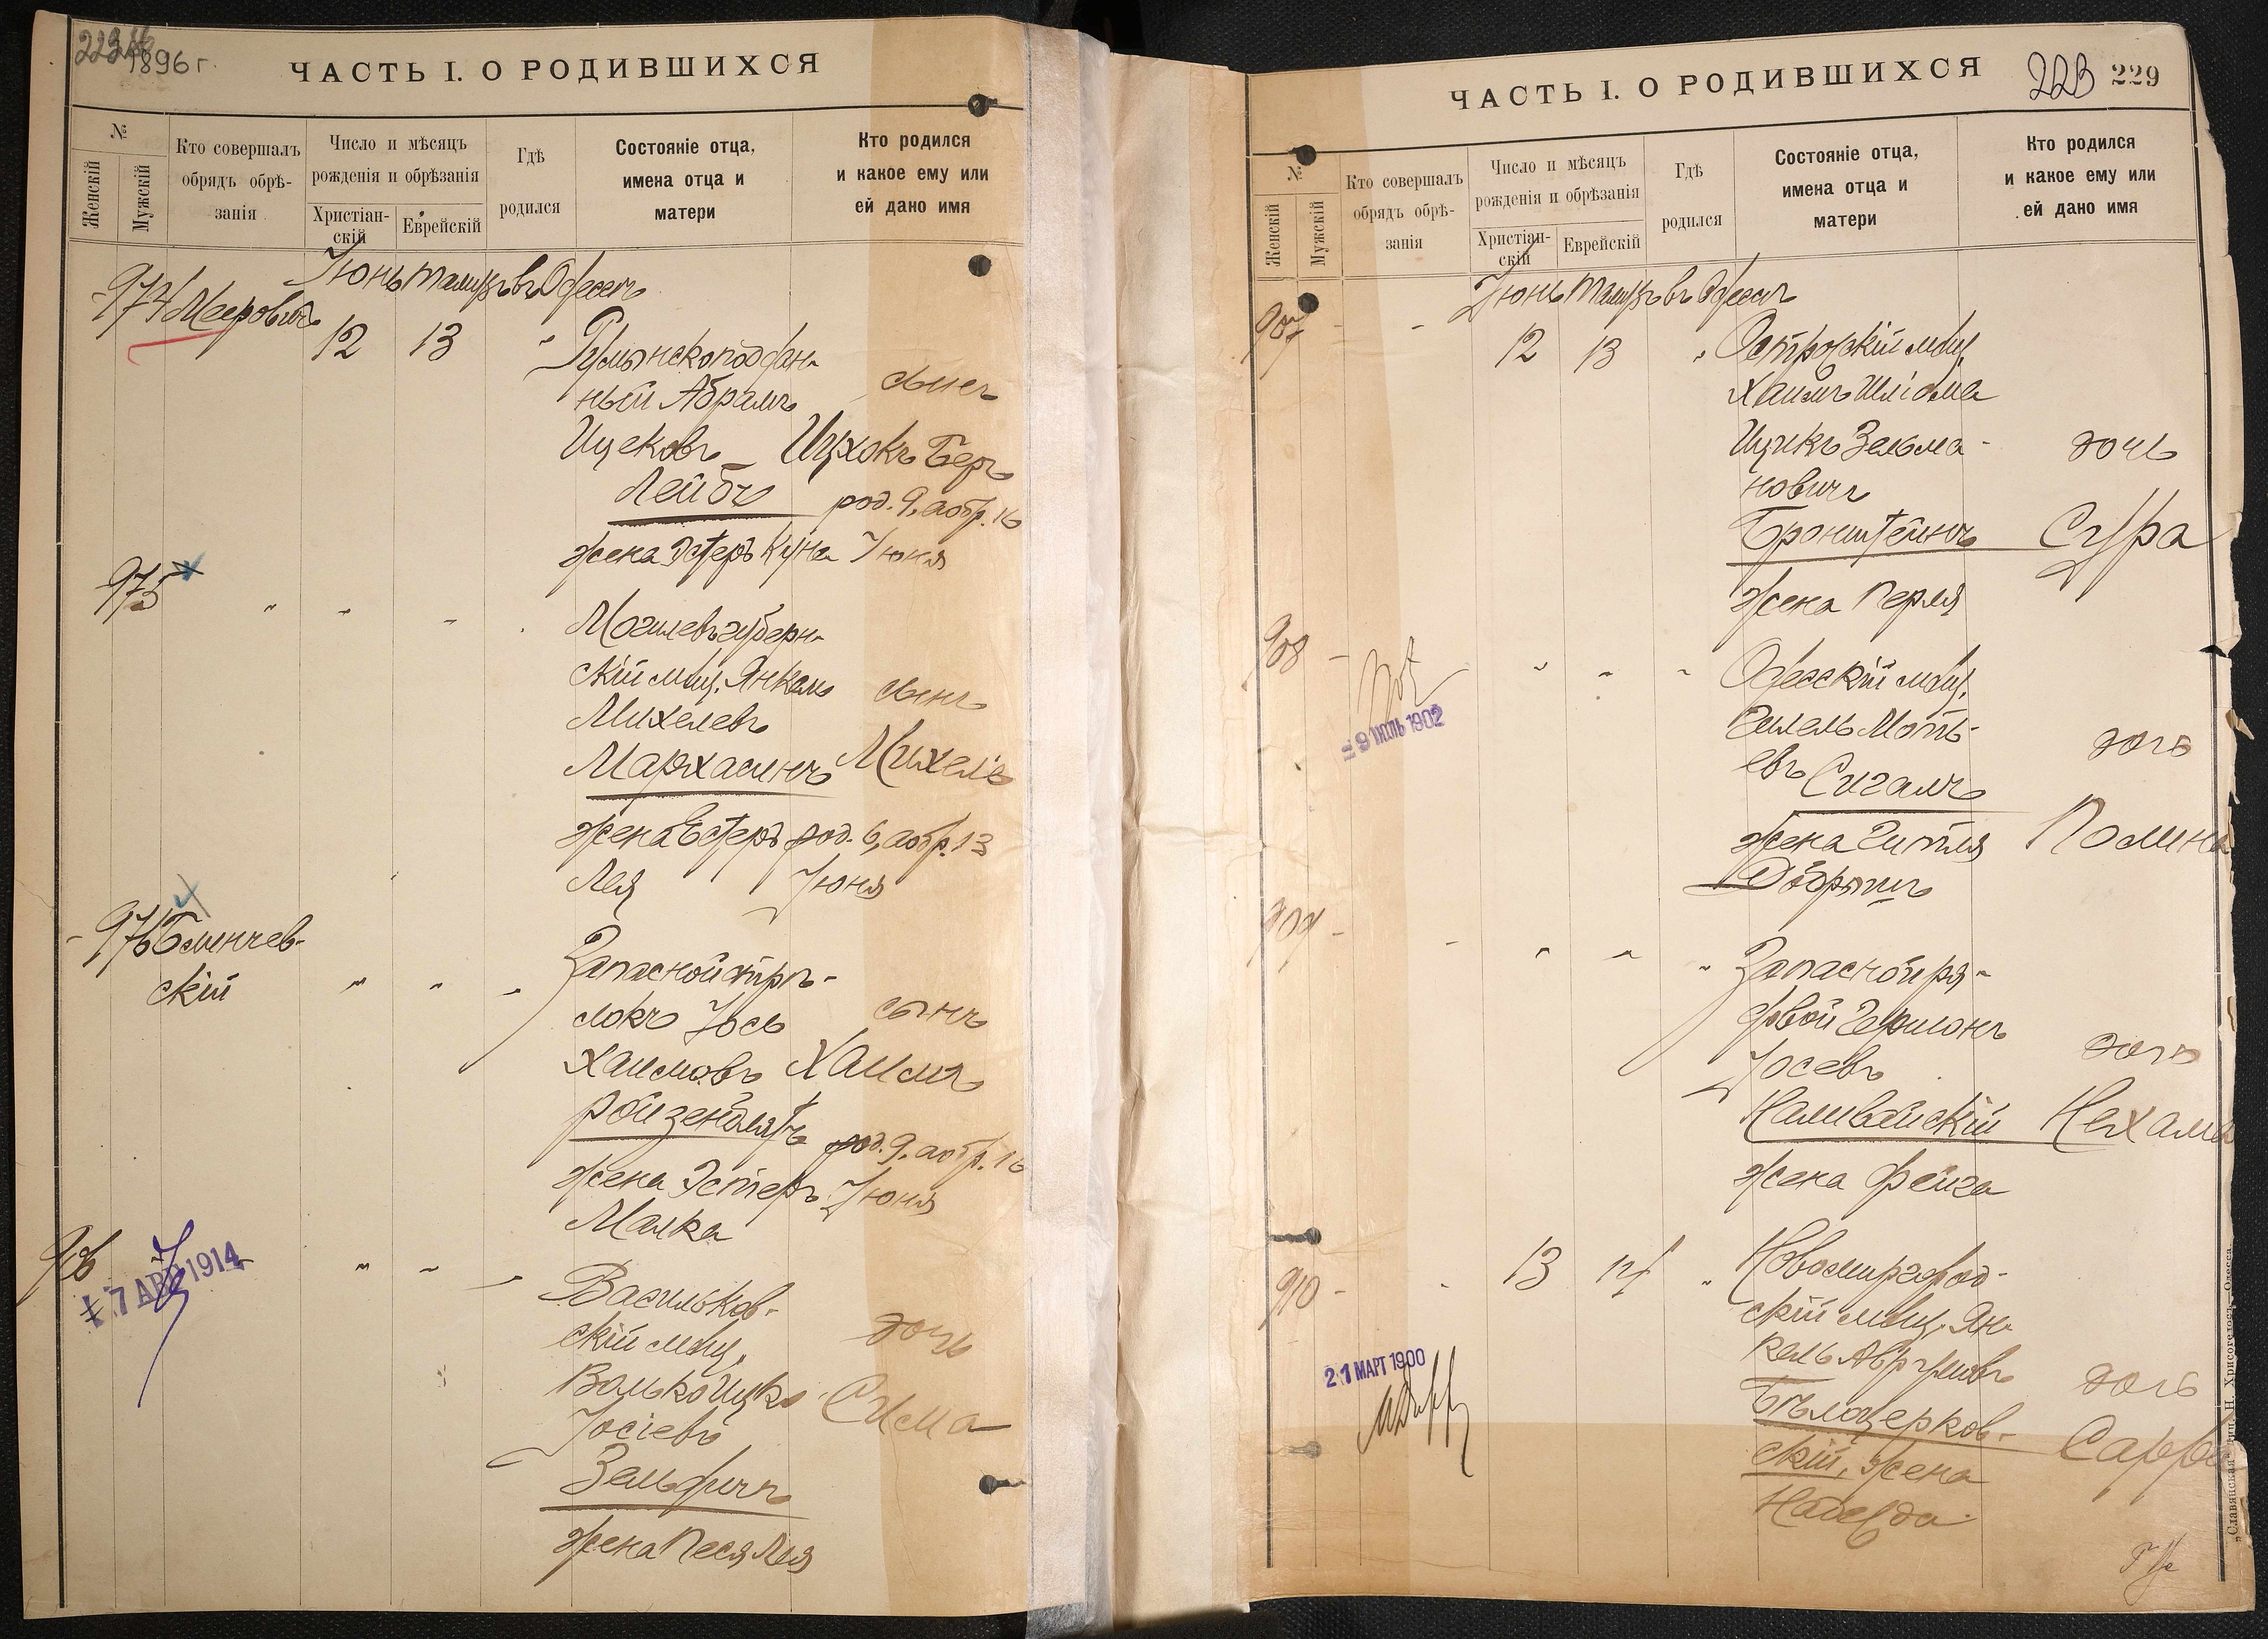 1896 г.
ЧАСТЬ I. О РОДИВШИХСЯ
№
Женскій
Мужскій
Кто совершалъ
обрядъ обрѣ-
занія
Число и мѣсяцъ
рожденія и обрѣзанія
Христіан-
скій
Еврейскій
Гдѣ
родился
Состояніе отца,
имена отца и
матери
Кто родился
и какое ему или
ей дано имя
Іюнь Тамузъ въ Одессѣ
974 Мееровичъ
12 13 " Румынскоподдан-
ный Абрамъ сынъ
Ицековъ Ицхокъ Беръ
Лейбъ род. 9, а обр. 16
жена Эстеръ Куна Іюня
975
" " " Могилевъ губерн-
скій мѣщ. Янкель сынъ
Михелевъ
Мархасинъ Михель
жена Естеръ род. 6, а обр. 13
Лея Іюня
976
скій
" " " Запасной стрѣ-
локъ Іось сынъ
Хаимовъ Хаимъ
Ройзенблятъ род. 9, а обр. 16
жена Эстеръ Іюня
Малка
906
7 АВГ 1914
" " " Васильков-
скій мѣщ. дочь
Волько Ицко Сима
Іосіевъ
жена Песя Лея
ЧАСТЬ I. О РОДИВШИХСЯ
223 229
№
Женскій
Мужскій
Кто совершалъ
обрядъ обрѣ-
занія
Число и мѣсяцъ
рожденія и обрѣзанія
Христіан-
скій
Еврейскій
Гдѣ
родился
Состояніе отца,
имена отца и
матери
Кто родился
и какое ему или
ей дано имя
Іюнь Тамузъ въ Одессѣ
907 - -
12 13 " Острожскій мѣщ.
Хаимъ Шліома
Ицикъ Зельма- дочь
новичъ
Бронштейнъ Сура
жена Перля
908 -
9 ІЮЛЬ 1902
" " " Одесскій мѣщ.
Гилель Мотъ- дочь
евъ Сигалъ
жена Гитля Полина
909 -
- " " " Запасной ря-
довой Гершонъ
Іосевъ дочь
Наливайскій Нехама
жена Фейга
910 -
13 14 " Новомиргород-
скій мѣщ. Ян-
кель Аврумовъ дочь
21 МАРТ 1900
Бѣлоцерков- Сарра
скій, жена
„Славянская“ тип. Н. Хрисогелосъ, Одесса.